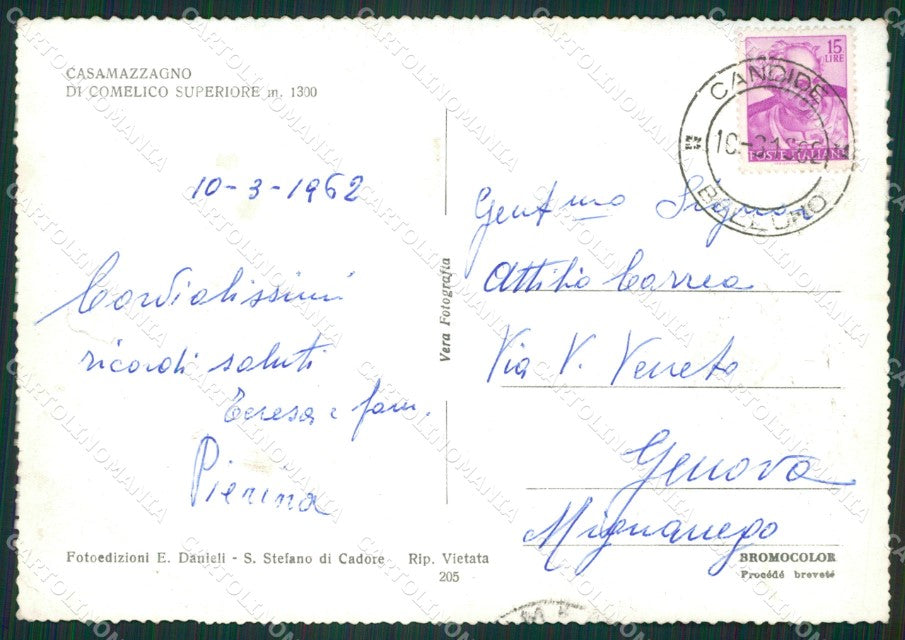 CASAMAZZAGNO
DI COMELICO SUPERIORE m. 1300
10-3-1962
Cordialissimi
ricordi saluti
Teresa e fam.
Pierina
Fotoedizioni E. Danieli - S. Stefano di Cadore Rip. Vietata
205
Vera Fotografia
15
LIRE
POSTE ITALIANE
CANDIDE
BELLUNO
Gent.mo Signor
Attilio Carrea
Via V. Veneto
Genova
Mignanego
BROMOCOLOR
Procédé breveté
CARTOLINOMANIA